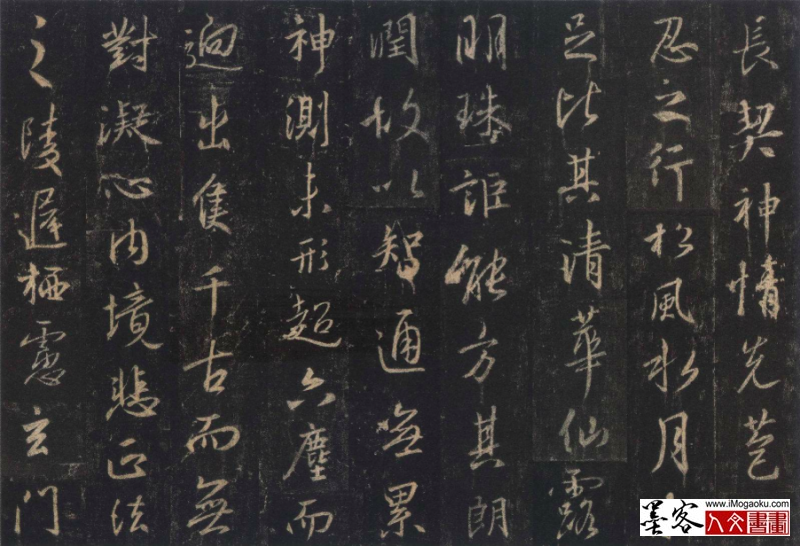 長契神情先苞
忍之行松風水月
足比其清華仙露
明珠詎能方其朗
潤故以智通無累
神測未形超六塵而
迥出隻千古而無
對凝心內境悲正法
之陵遲栖慮玄門
www.iMogaoku.com
墨客